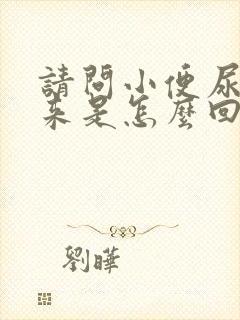 請問小便尿
來是怎麼回
劉曄